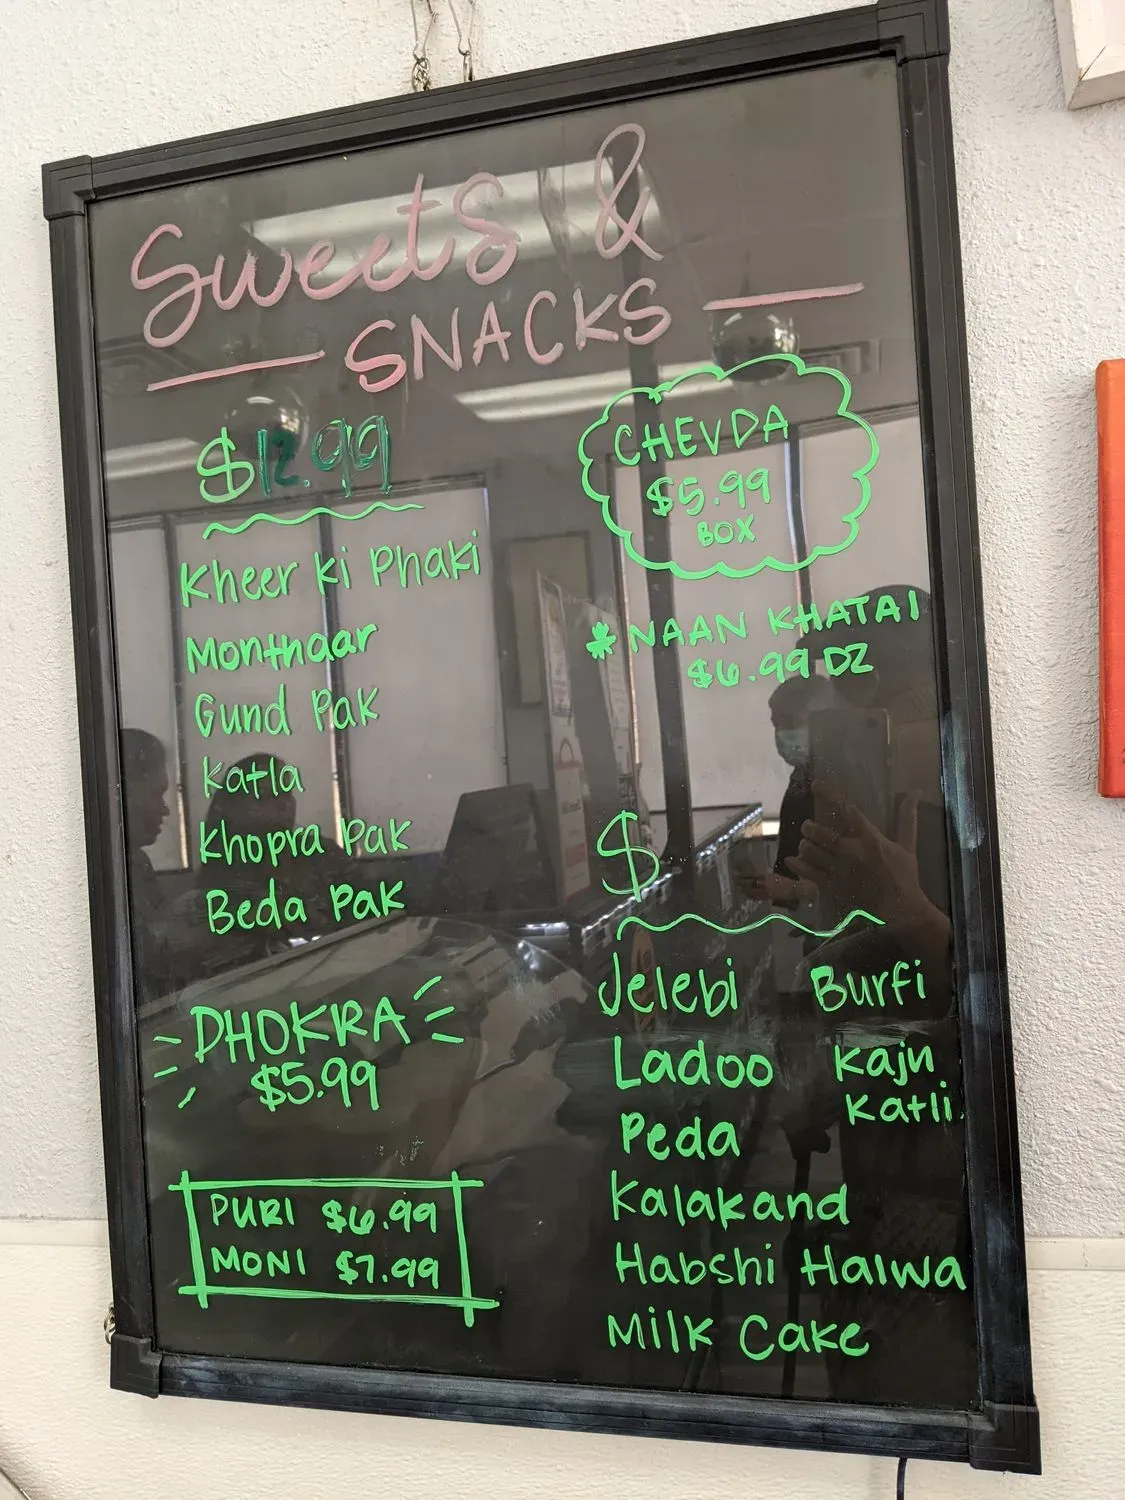 Sweets &
SNACKS
$12.99
Kheer Ki Phaki
Monthaar
Gund Pak
Katla
Khopra Pak
Beda Pak
DHOKRA
$5.99
PURI $6.99
MONI $7.99
CHEVDA
$5.99
BOX
NAAN KHATAI
$6.99 DZ
$
Jelebi Burfi
Ladoo Kaju
Katli
Peda
Kalakand
Habshi Halwa
Milk Cake